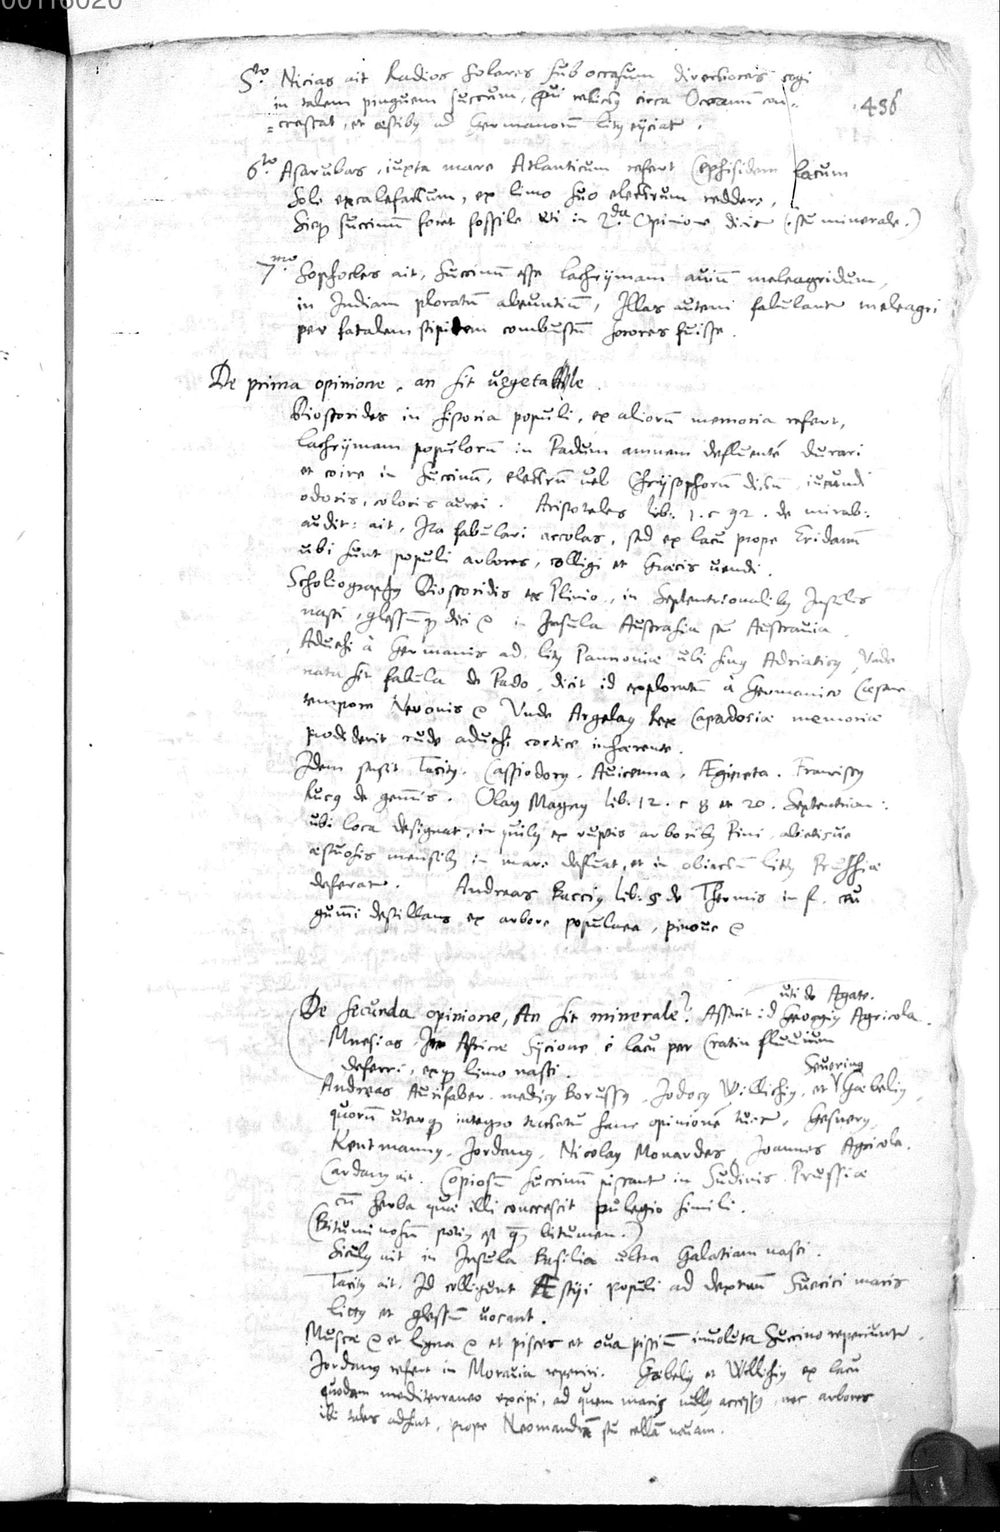 00116020
436
5to. Nicias ait Radios Solares sub occasum directiores cogi
in talem pinguem succum, qui relictus circa Oceanum con-
=crescat, et æstibus ad Germanorum litus eijciat.
6to. Asarubas, iuxta mare Atlanticum refert Cephisidem lacum
Sole excalefactum, ex limo suo electrum reddere,
Sicque succinum foret fossile uti in 2da. Opinione dicit (seu minerale.)
7mo. Sophocles ait, Succinum esse lachrÿmam auium meleagridum,
in Indiam ploratum abeuntium, Illas autem fabulantur meleagri
per fatalem stipitem combustum sorores fuisse.
De prima opinione, an sit uegetabile.
Dioscorides in historia populi, ex aliorum memoria refert,
lachrÿmam populorum in Padum amnem defluentem durari
et coire in succinum, electrum uel Chrÿsophorum dictum, iucundi
odoris, coloris aurei. Aristoteles lib: 1. c 92. de mirab:
audit: ait, Ita fabulari accolas, sed ex lacu prope Eridanum
ubi sunt populi arbores, colligi et Græcis uendi.
Scholiographus Dioscoridis ex Plinio, in Septentrionalibus Insulis
nasci, glessumque dici & in Insula Austrasia seu Austrauia
Aduehi à Germanis ad litus Pannoniæ ubi sinus Adriaticus, Unde
nata sit fabula de Pado, dicit id exploratum à Germanico Cæsare
tempore Neronis & Unde Argelaus Rex Capadociæ memoriæ
prodiderit rude aduehi cortice inhærente.
Idem sensit Tacitus. Cassiodorus, Auicenna, Ægineta. Franciscus
Rueus de gemmis. Olaus Magnus lib. 12. c 8 et 20. Septentrion:
ubi loca designat, in quibus ex ruptis arboribus Pini abietisue
æstuosis mensibus in mare defluat, et in obiectum litus Prussiæ
deferatur. Andreas Baccius lib: 5 de Thermis in f. ceu
gummi destillans ex arbore populnea, pinoue &
De secunda opinione, An sit minerale? Asserit id Georgius Agricola. uti de Agate.
Mnesias In Africæ Sycione è lacu per Cratin fluuium
deferri, exque limo nasci.
Andreas Aurifaber. medicus Borussus, Jodocus Willichius, et Seuerinus Gœbelius,
quorum uterque integro tractatu hanc opinionem tuetur, Gesnerus,
Kentmannus, Jordanus, Nicolaus Monardes, Joannes Agricola.
Cardanus ait. Copiosum succinum piscantur in Sudinis Prussiæ
cum herba quæ illi concrescit pulegio simili.
(Bituminosum potius est quam bitumen.)
Siculus ait in Insula Basilia ultra Galatiam nasci.
Tacitus ait. Id colligunt Æstÿi populi ad dextrum Sueuici maris
litus et glessum uocant.
Muscæ & et ligna & et pisces et oua piscium inuoluta Succino reperiuntur.
Jordanus refert in Morauia reperiri. Gœbelius et Willichius ex lacu
quodam mediterraneo excipi, ad quem maris nullus accessus, nec arbores
ibi tales adsunt, prope Neomandram seu cellam nouam.